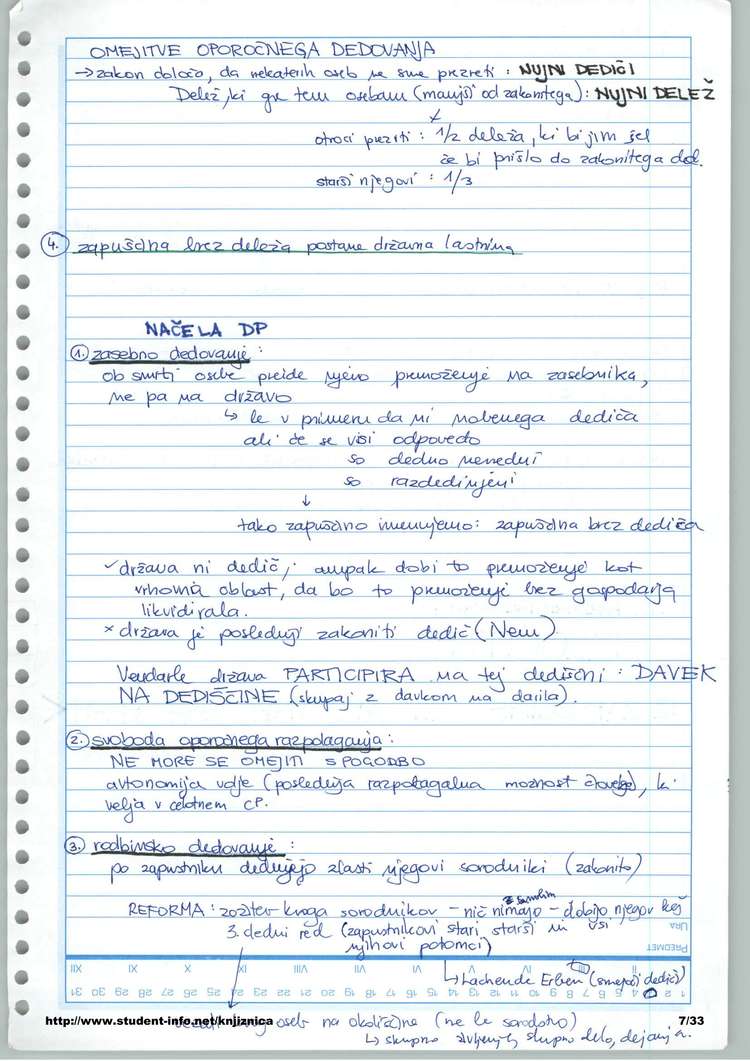 OMEJITVE OPOROČNEGA DEDOVANJA
→ zakon določa, da nekaterih oseb ne sme prezreti : NUJNI DEDIČI
Delež, ki gre tem osebam (manjši od zakonitega): NUJNI DELEŽ
otroci prezrti : 1/2 deleža, ki bi jim šel
če bi prišlo do zakonitega ded.
starši njegovi : 1/3
4. zapuščina brez deleža postane državna lastnina
NAČELA DP
1. zasebno dedovanje :
ob smrti osebe preide njeno premoženje na zasebnika,
ne pa na državo
↳ le v primeru da ni nobenega dediča
ali če se vsi odpovedo
so dedno nevredni
so razdedinjeni
↓
tako zapuščino imenujemo: zapuščina brez dediča
✓ država ni dedič, ampak dobi to premoženje kot
vrhovna oblast, da bo to premoženje brez gospodarja
likvidirala.
× država je poslednji zakoniti dedič (Nem).
Vendarle država PARTICIPIRA na tej dediščini : DAVEK
NA DEDIŠČINE (skupaj z davkom na darila).
2. svoboda oporočnega razpolaganja :
NE MORE SE OMEJITI S POGODBO
avtonomija volje (poslednja razpolagalna možnost človeka), ki
velja v celotnem CP.
3. rodbinsko dedovanje :
po zapustniku dedujejo zlasti njegovi sorodniki (zakonito)
REFORMA : zožitev kroga sorodnikov – nič nimajo z samim – dobijo njegov keš
3. dedni red (zapustnikovi stari starši in vsi
njihovi potomci)
URA
PREDMET
XII XI X IX VIII VII VI V IV III II I
↳ Lachende Erben (smejoči dediči)
31 30 29 28 27 26 25 24 23 22 21 20 19 18 17 16 15 14 13 12 11 10 9 8 7 6 5 4 3 2 1
http://www.student-info.net/knjiznica 7/33
oseb na okoliščine (ne le sorodstvo)
↳ skupno življenje, skupno delo, dejanja.